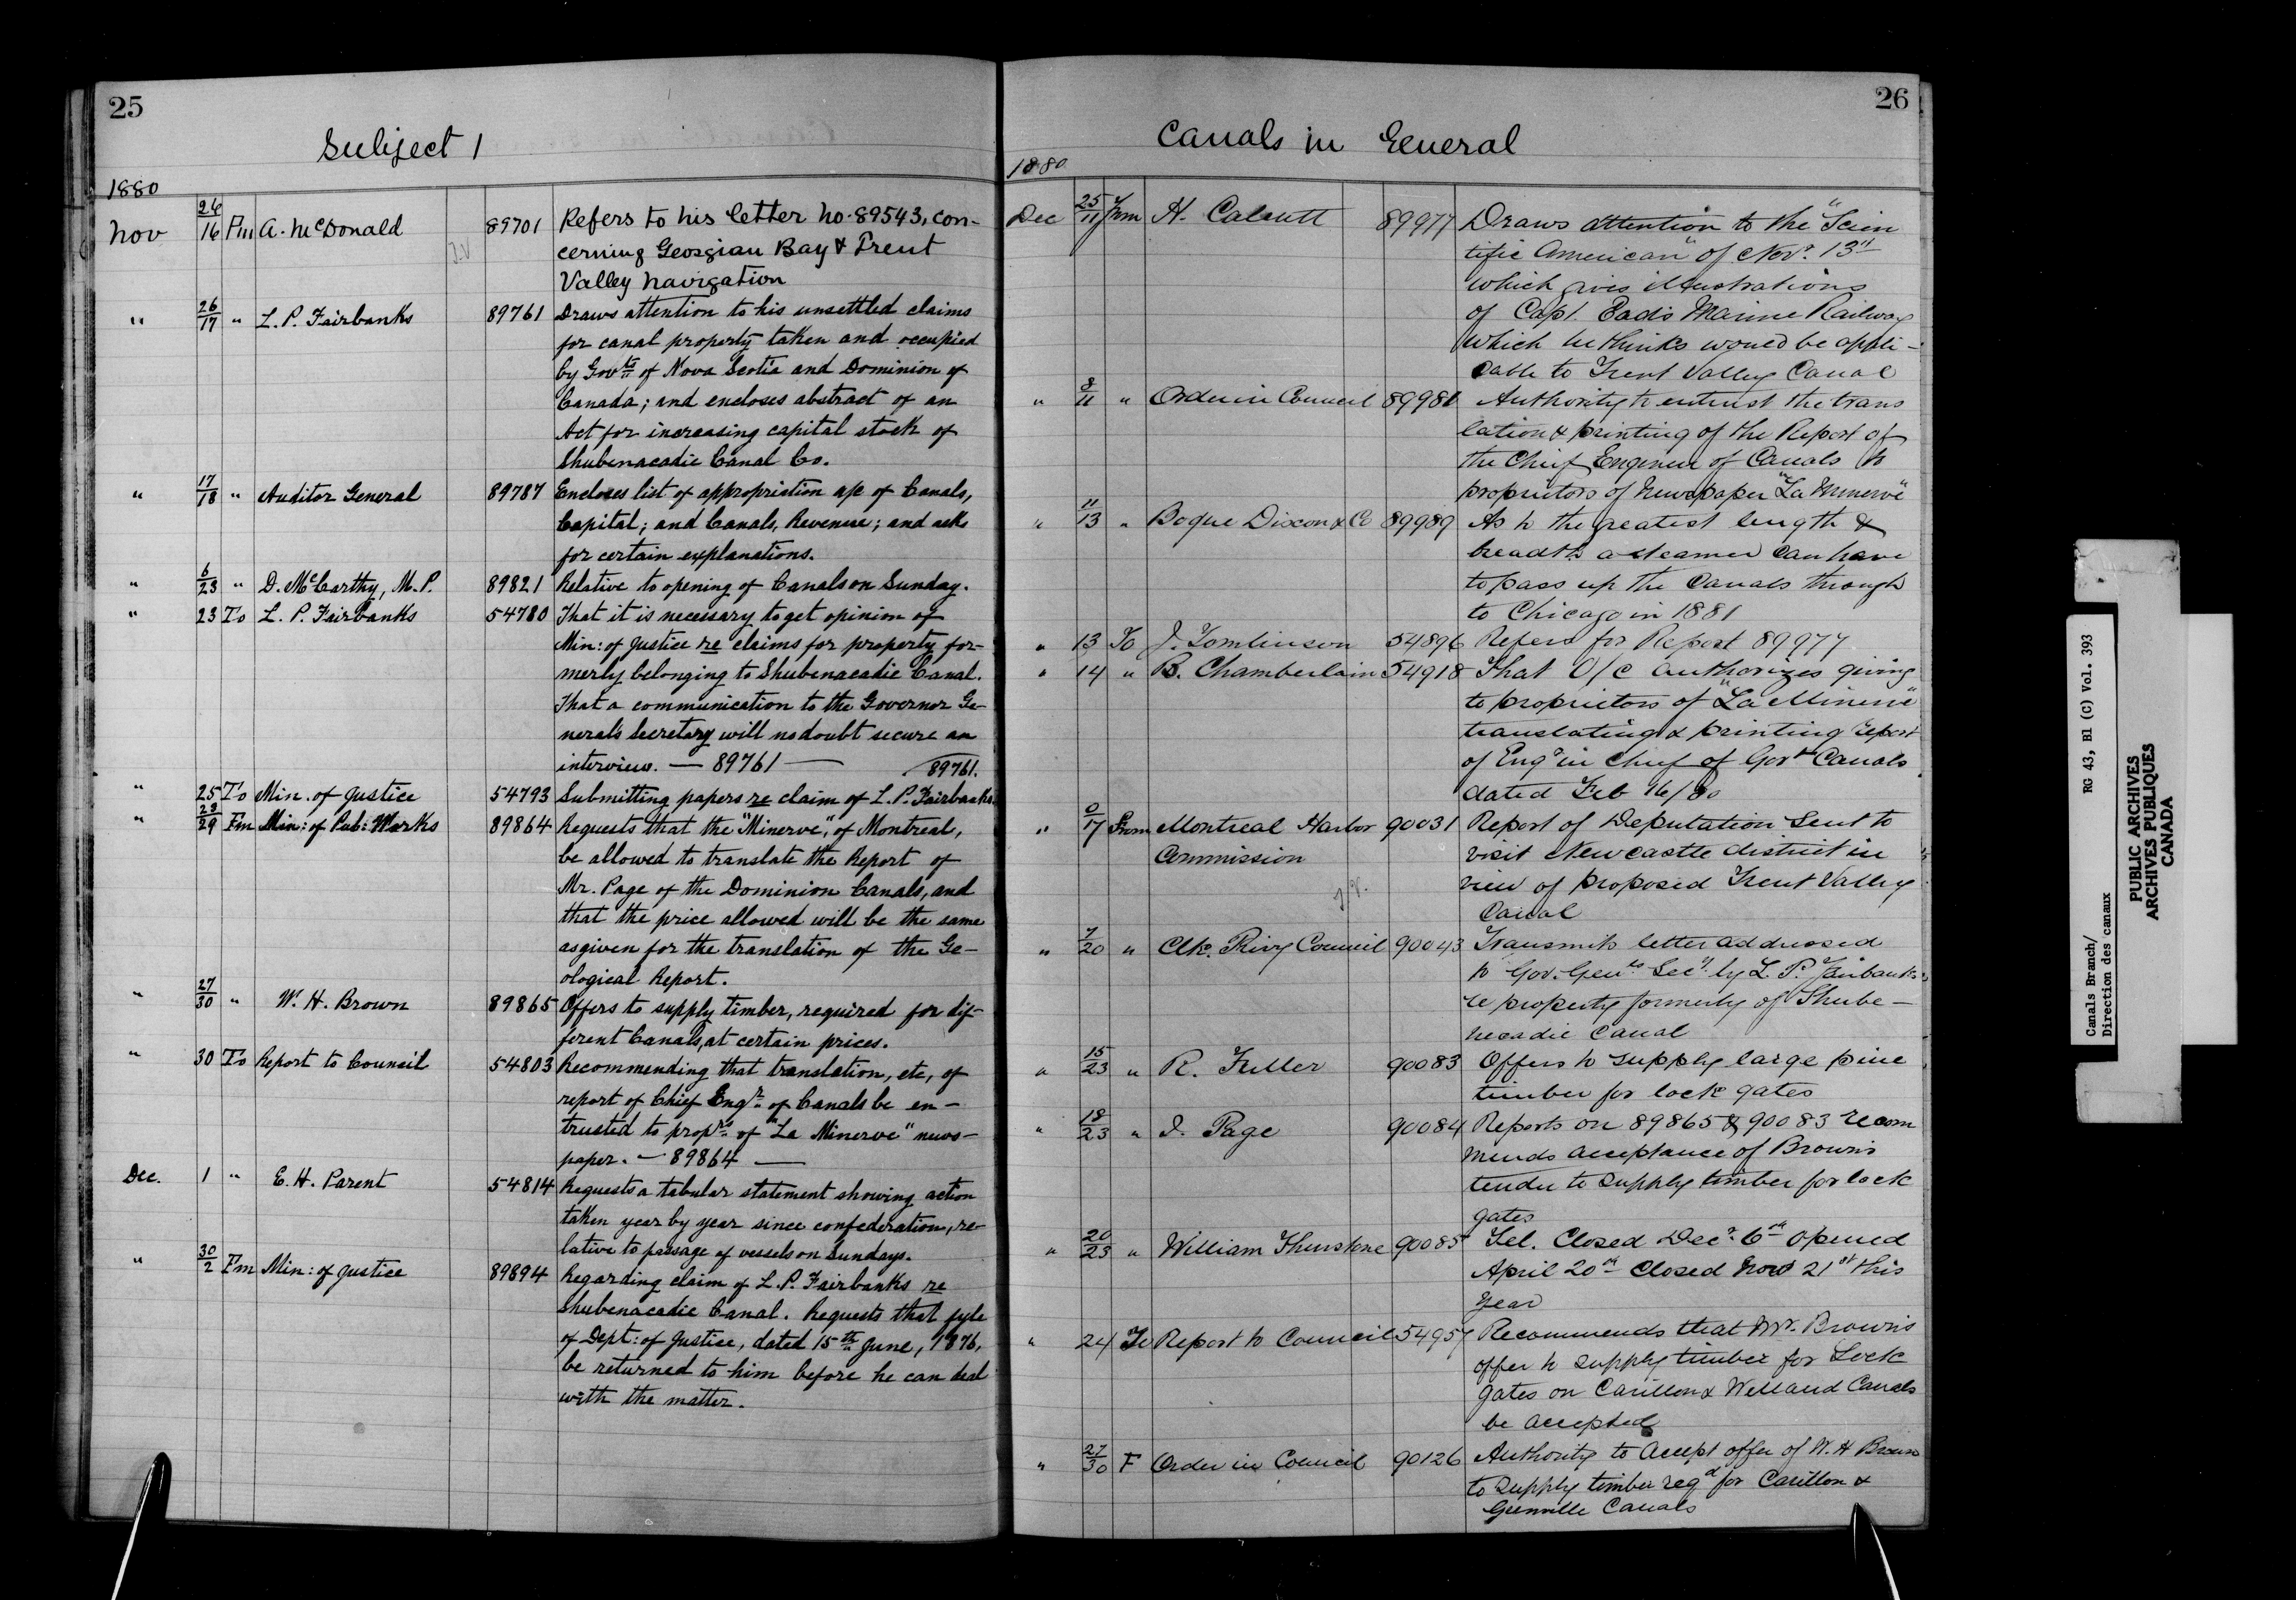 25
Subject 1
1880
Nov 26/16 Fm A. McDonald 89701 Refers to his letter no. 89543, con-
cerning Georgian Bay & Trent
Valley navigation
" 26/17 " L. P. Fairbanks 89761 Draws attention to his unsettled claims
for canal property taken and occupied
by Govts of Nova Scotia and Dominion of
Canada; and encloses abstract of an
Act for increasing capital stock of
Shubenacadie Canal Co.
" 17/18 " Auditor General 89787 Encloses list of appropriation a/c of Canals,
Capital; and Canals, Revenue; and asks
for certain explanations.
" 6/23 " D. McCarthy, M.P. 89821 Relative to opening of Canals on Sunday.
" 23 To L. P. Fairbanks 54780 That it is necessary to get opinion of
Min: of Justice re claims for property for-
merly belonging to Shubenacadie Canal.
That a communication to the Governor Ge-
neral's Secretary will no doubt secure an
interview. — 89761 — 89761.
" 25 To Min. of Justice 54793 Submitting papers re claim of L. P. Fairbanks.
" 29 Fm Min: of Pub: Works 89864 Requests that the "Minerve", of Montreal,
be allowed to translate the Report of
Mr. Page of the Dominion Canals, and
that the price allowed will be the same
as given for the translation of the Ge-
ological Report.
" 27/30 " W. H. Brown 89865 Offers to supply timber, required for dif-
ferent Canals, at certain prices.
" 30 To Report to Council 54803 Recommending that translation, etc, of
report of Chief Engr. of Canals be en-
trusted to proprs of "La Minerve" news-
paper. — 89864 —
Dec. 1 " E. H. Parent 54814 Requests a tabular statement showing action
taken year by year since confederation, re-
lative to passage of vessels on Sundays.
" 30/2 Fm Min: of Justice 89894 Regarding claim of L. P. Fairbanks re
Shubenacadie Canal. Requests that fyle
of Dept: of Justice, dated 15th June, 1876,
be returned to him before he can deal
with the matter.
26
Canals in General
1880
Dec 25/11 From H. Calcutt 89977 Draws attention to the "Scien
tific American" of Novr. 13th
which gives illustrations
of Capt. Eads Marine Railway
which he thinks would be appli-
cable to Trent Valley Canal
" 8/11 " Order in Council 89981 Authority to entrust the trans
lation & printing of the Report of
the Chief Engineer of Canals to
proprietors of Newspaper "La Minerve"
" 11/13 " Bogue Dixon & Co 89989 As to the greatest length &
breadth a steamer can have
to pass up the Canals through
to Chicago in 1881
" 13 To J. Tomlinson 54896 Refers for Report 89977
" 14 " B. Chamberlain 54918 That O/C authorizes giving
to proprietors of "La Minerve"
translating & printing report
of Engr in Chief of Govt Canals
dated Feb 16/80
" 0/17 From Montreal Harbor 90031 Report of Deputation sent to
Commission visit Newcastle district in
view of proposed Trent Valley
Canal
" 7/20 " Clk. Privy Council 90043 Transmits letter addressed
to Gov. Genls Secy. by L. P. Fairbanks
re property formerly of Shube-
necadie Canal
" 15/23 " R. Fuller 90083 Offers to supply large pine
timber for lock gates
" 18/23 " J. Page 90084 Reports on 89865 & 90083 recom
mends acceptance of Brown's
tender to supply timber for lock
gates
" 20/23 " William Thurstone 90085 Tel. Closed Decr. 6th opened
April 20th Closed Novr 21st this
year
" 24 To Report to Council 54957 Recommends that Mr. Brown's
offer to supply timber for Lock
gates on Carillon & Welland Canals
be accepted
" 27/30 F Order in Council 90126 Authority to accept offer of W. H Brown
to supply timber reqd for Carillon &
Grenville Canals
Canals Branch/ RG 43, Bl (C) Vol. 393
Direction des canaux
PUBLIC ARCHIVES
ARCHIVES PUBLIQUES
CANADA